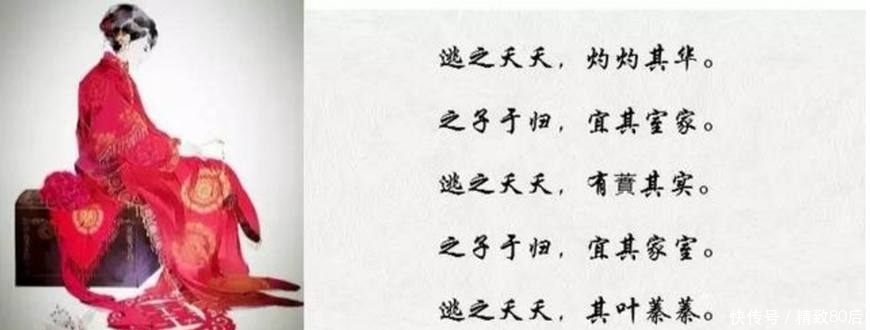 逃之夭夭，灼灼其华。
之子于归，宜其室家。
逃之夭夭，有蕡其实。
之子于归，宜其家室。
逃之夭夭，其叶蓁蓁。
快传号 / 精致80后